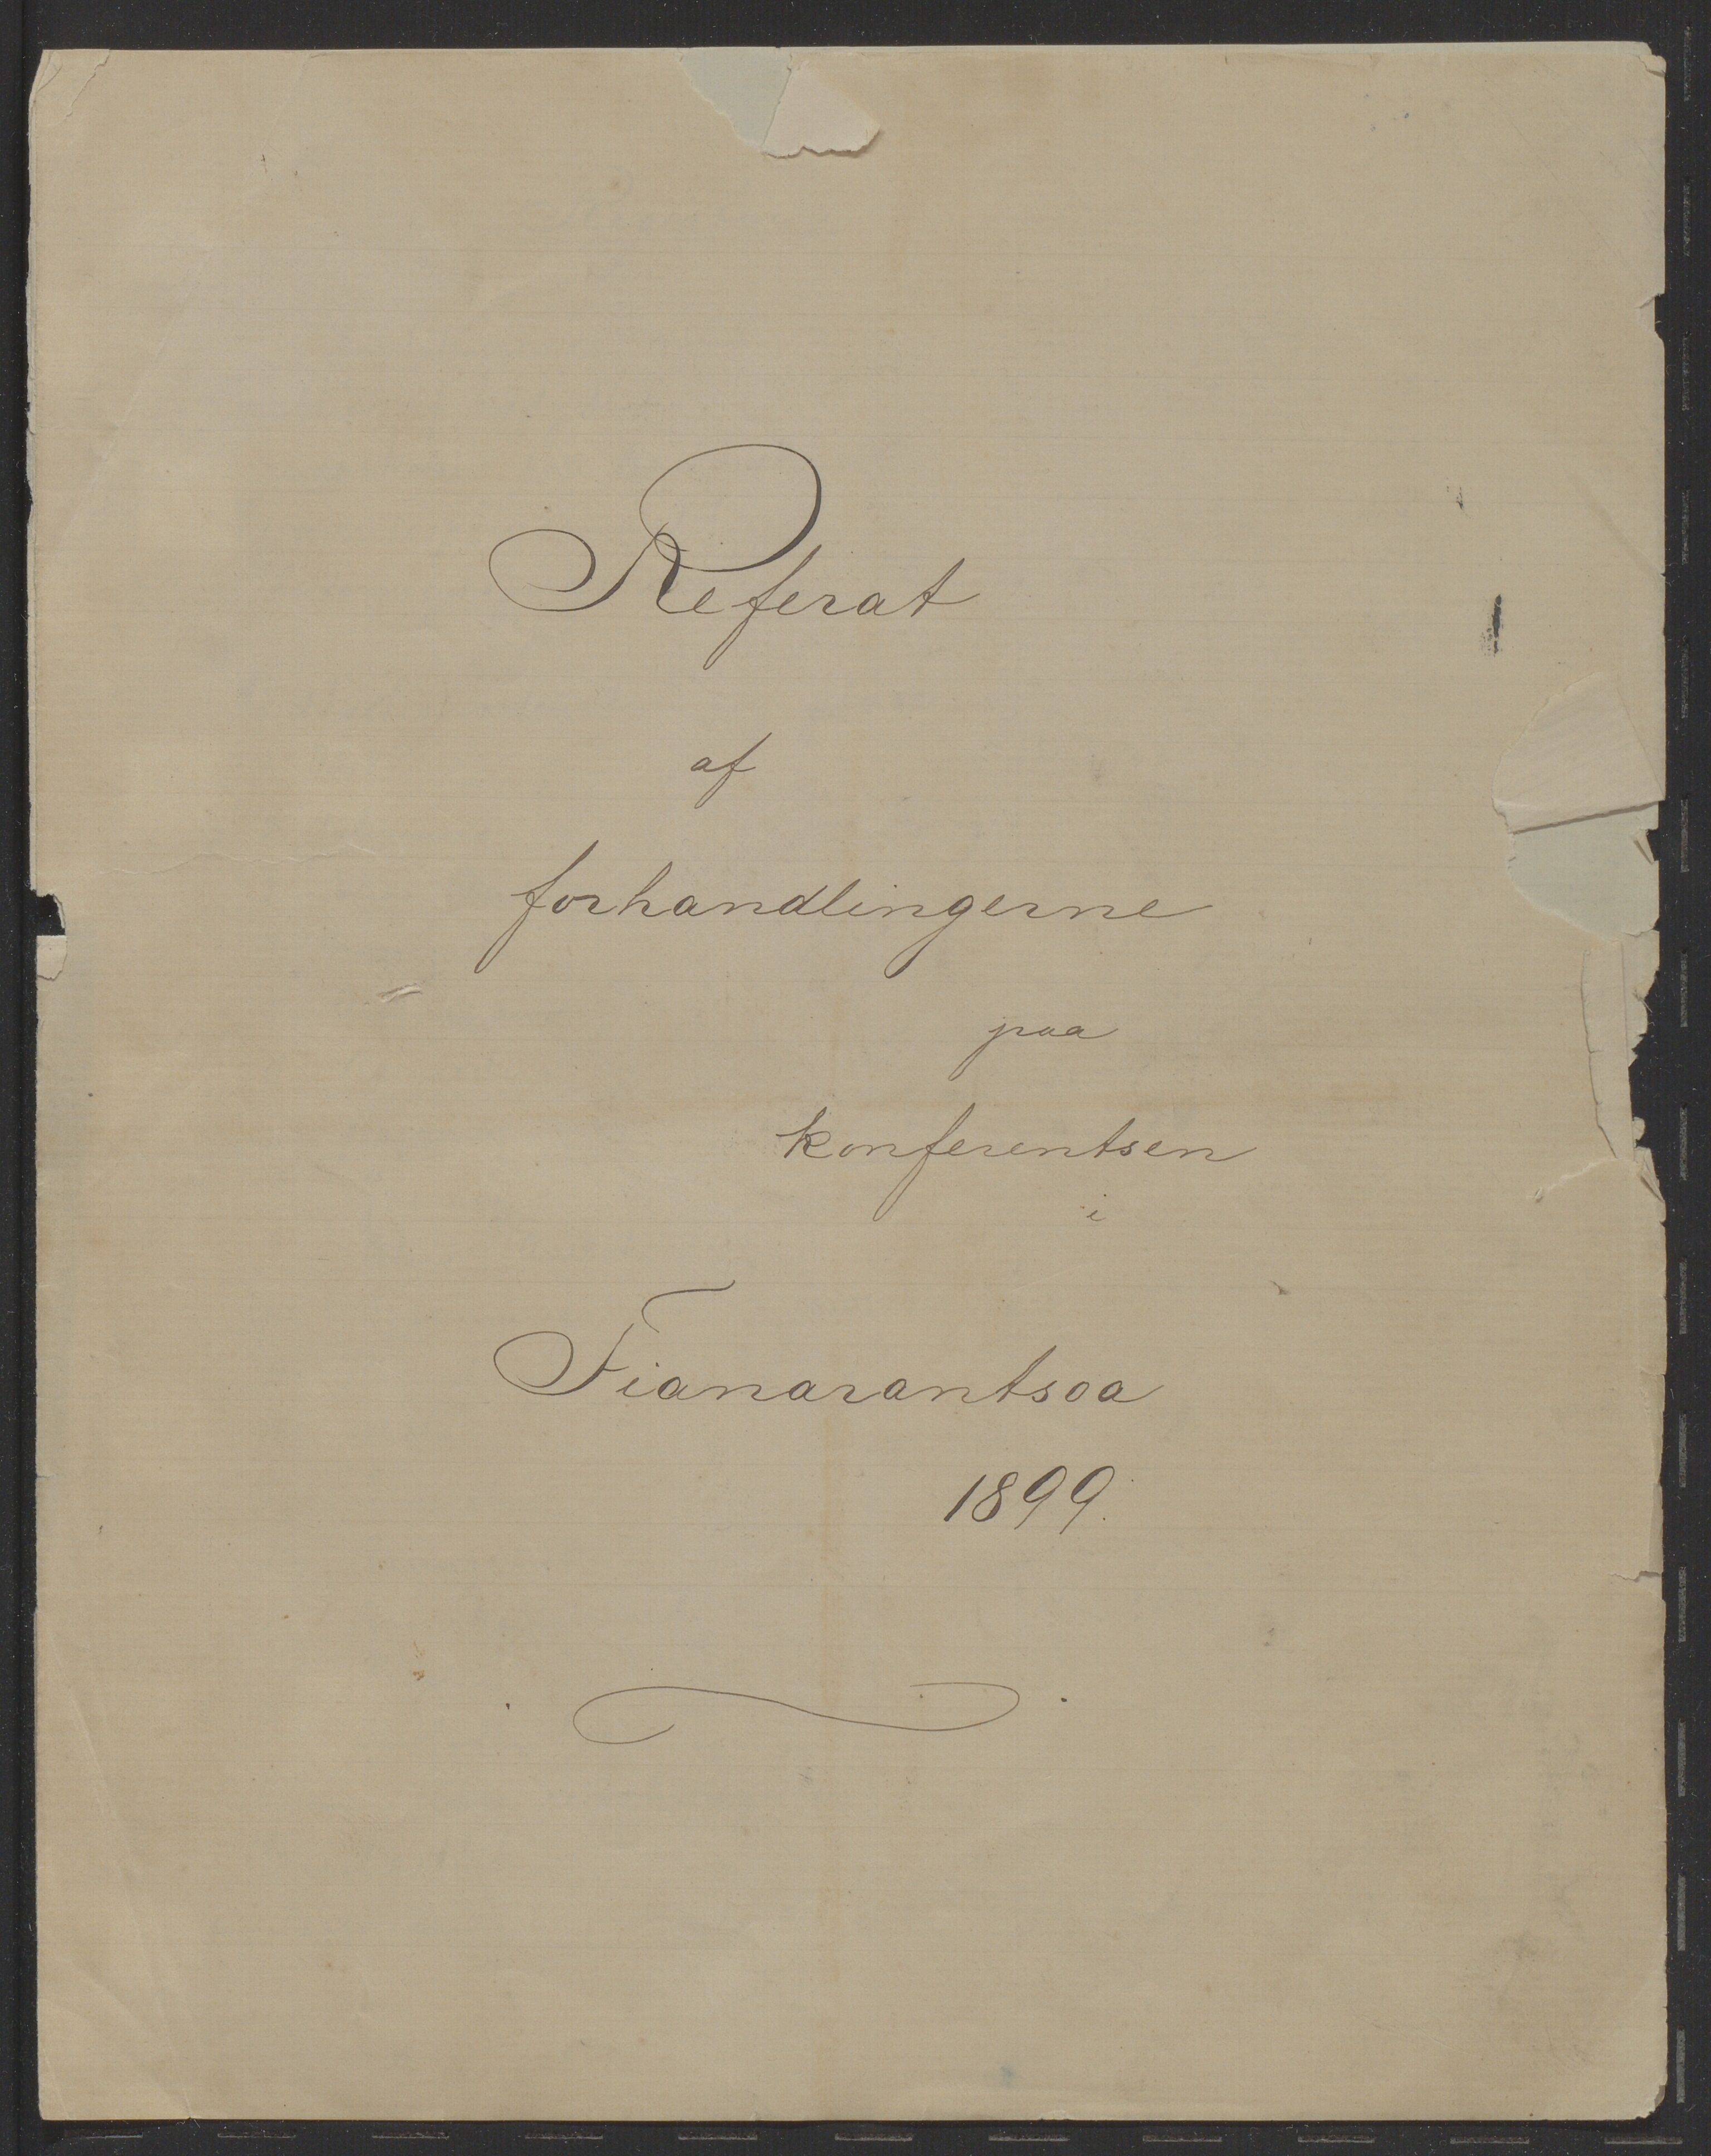 Referat
af
forhandlingerne
paa
konferentsen
i
Fianarantsoa
1899.